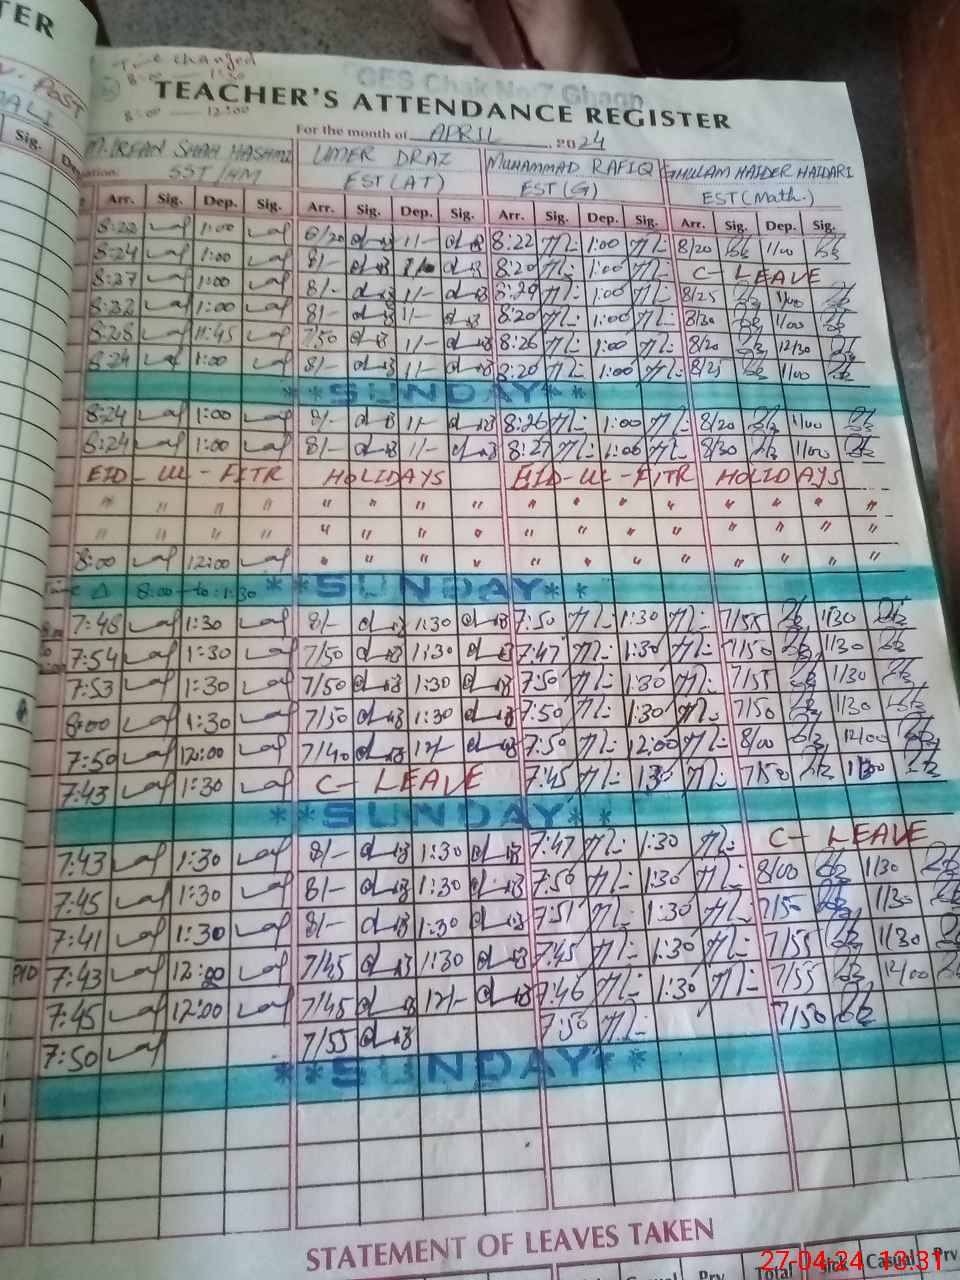 TER
Time changed
8:00 — 1:30
8:00 — 12:00
GES Chak No.7 Ghagh
TEACHER'S ATTENDANCE REGISTER
For the month of APRIL 2024
M. IRFAN SHAH HASHMI UMER DRAZ MUHAMMAD RAFIQ GHULAM HAIDER HAIDARI
SST/HM EST (AT) EST (G) EST (Math.)
Arr. Sig. Dep. Sig. Arr. Sig. Dep. Sig. Arr. Sig. Dep. Sig. Arr. Sig. Dep. Sig.
8:22 1:00 8/20 1/- 8:22 1:00 8/20 1/00
8:24 1:00 8/- 8:20 1:00 C- LEAVE
8:37 1:00 8/- 1/- 8:29 1:00 8/25 1/00
8:32 1:00 8/- 1/- 8:20 1:00 8/30 1/00
8:28 11:45 7/50 1/- 8:26 1:00 8/20 12/30
8:24 1:00 8/- 1/- 8:20 1:00 8/25 1/00
**SUNDAY**
8:24 1:00 8/- 1/- 8:26 1:00 8/20 1/00
8:24 1:00 8/- 1/- 8:27 1:00 8/30 1/00
EID-UL-FITR HOLIDAYS EID-UL-FITR HOLIDAYS
" " " " " " " " " " " " " " " "
" " " " " " " " " " " " " " " "
8:00 12:00 " " " " " " " " " " " "
Time Δ 8:00 - to - 1:30 **SUNDAY**
7:48 1:30 8/- 1:30 7:50 1:30 7/55 1/30
7:54 1:30 7/50 1:30 7:47 1:30 7/50 1/30
7:53 1:30 7/50 1:30 7:50 1:30 7/55 1/30
8:00 1:30 7/50 1:30 7:50 1:30 7/50 1/30
7:50 12:00 7/40 12/- 7:50 12:00 8/00 12/00
7:43 1:30 C- LEAVE 7:45 1:30 7/50 1/30
**SUNDAY**
7:43 1:30 8/- 1:30 7:47 1:30 C- LEAVE
7:45 1:30 8/- 1:30 7:50 1:30 8/00 1/30
7:41 1:30 8/- 1:30 7:51 1:30 7/50 1/30
7:43 12:00 7/45 1:30 7:45 1:30 7/55 1/30
7:45 12:00 7/45 12/- 7:46 1:30 7/55 12/00
7:50 7/55 7:50 7/50
**SUNDAY**
STATEMENT OF LEAVES TAKEN
Total Sick Casual Prv
27-04-24 13:31